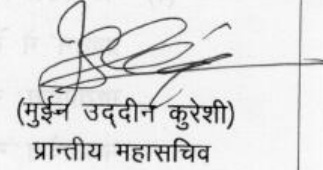 (मुईन उद्दीन कुरेशी)
प्रान्तीय महासचिव